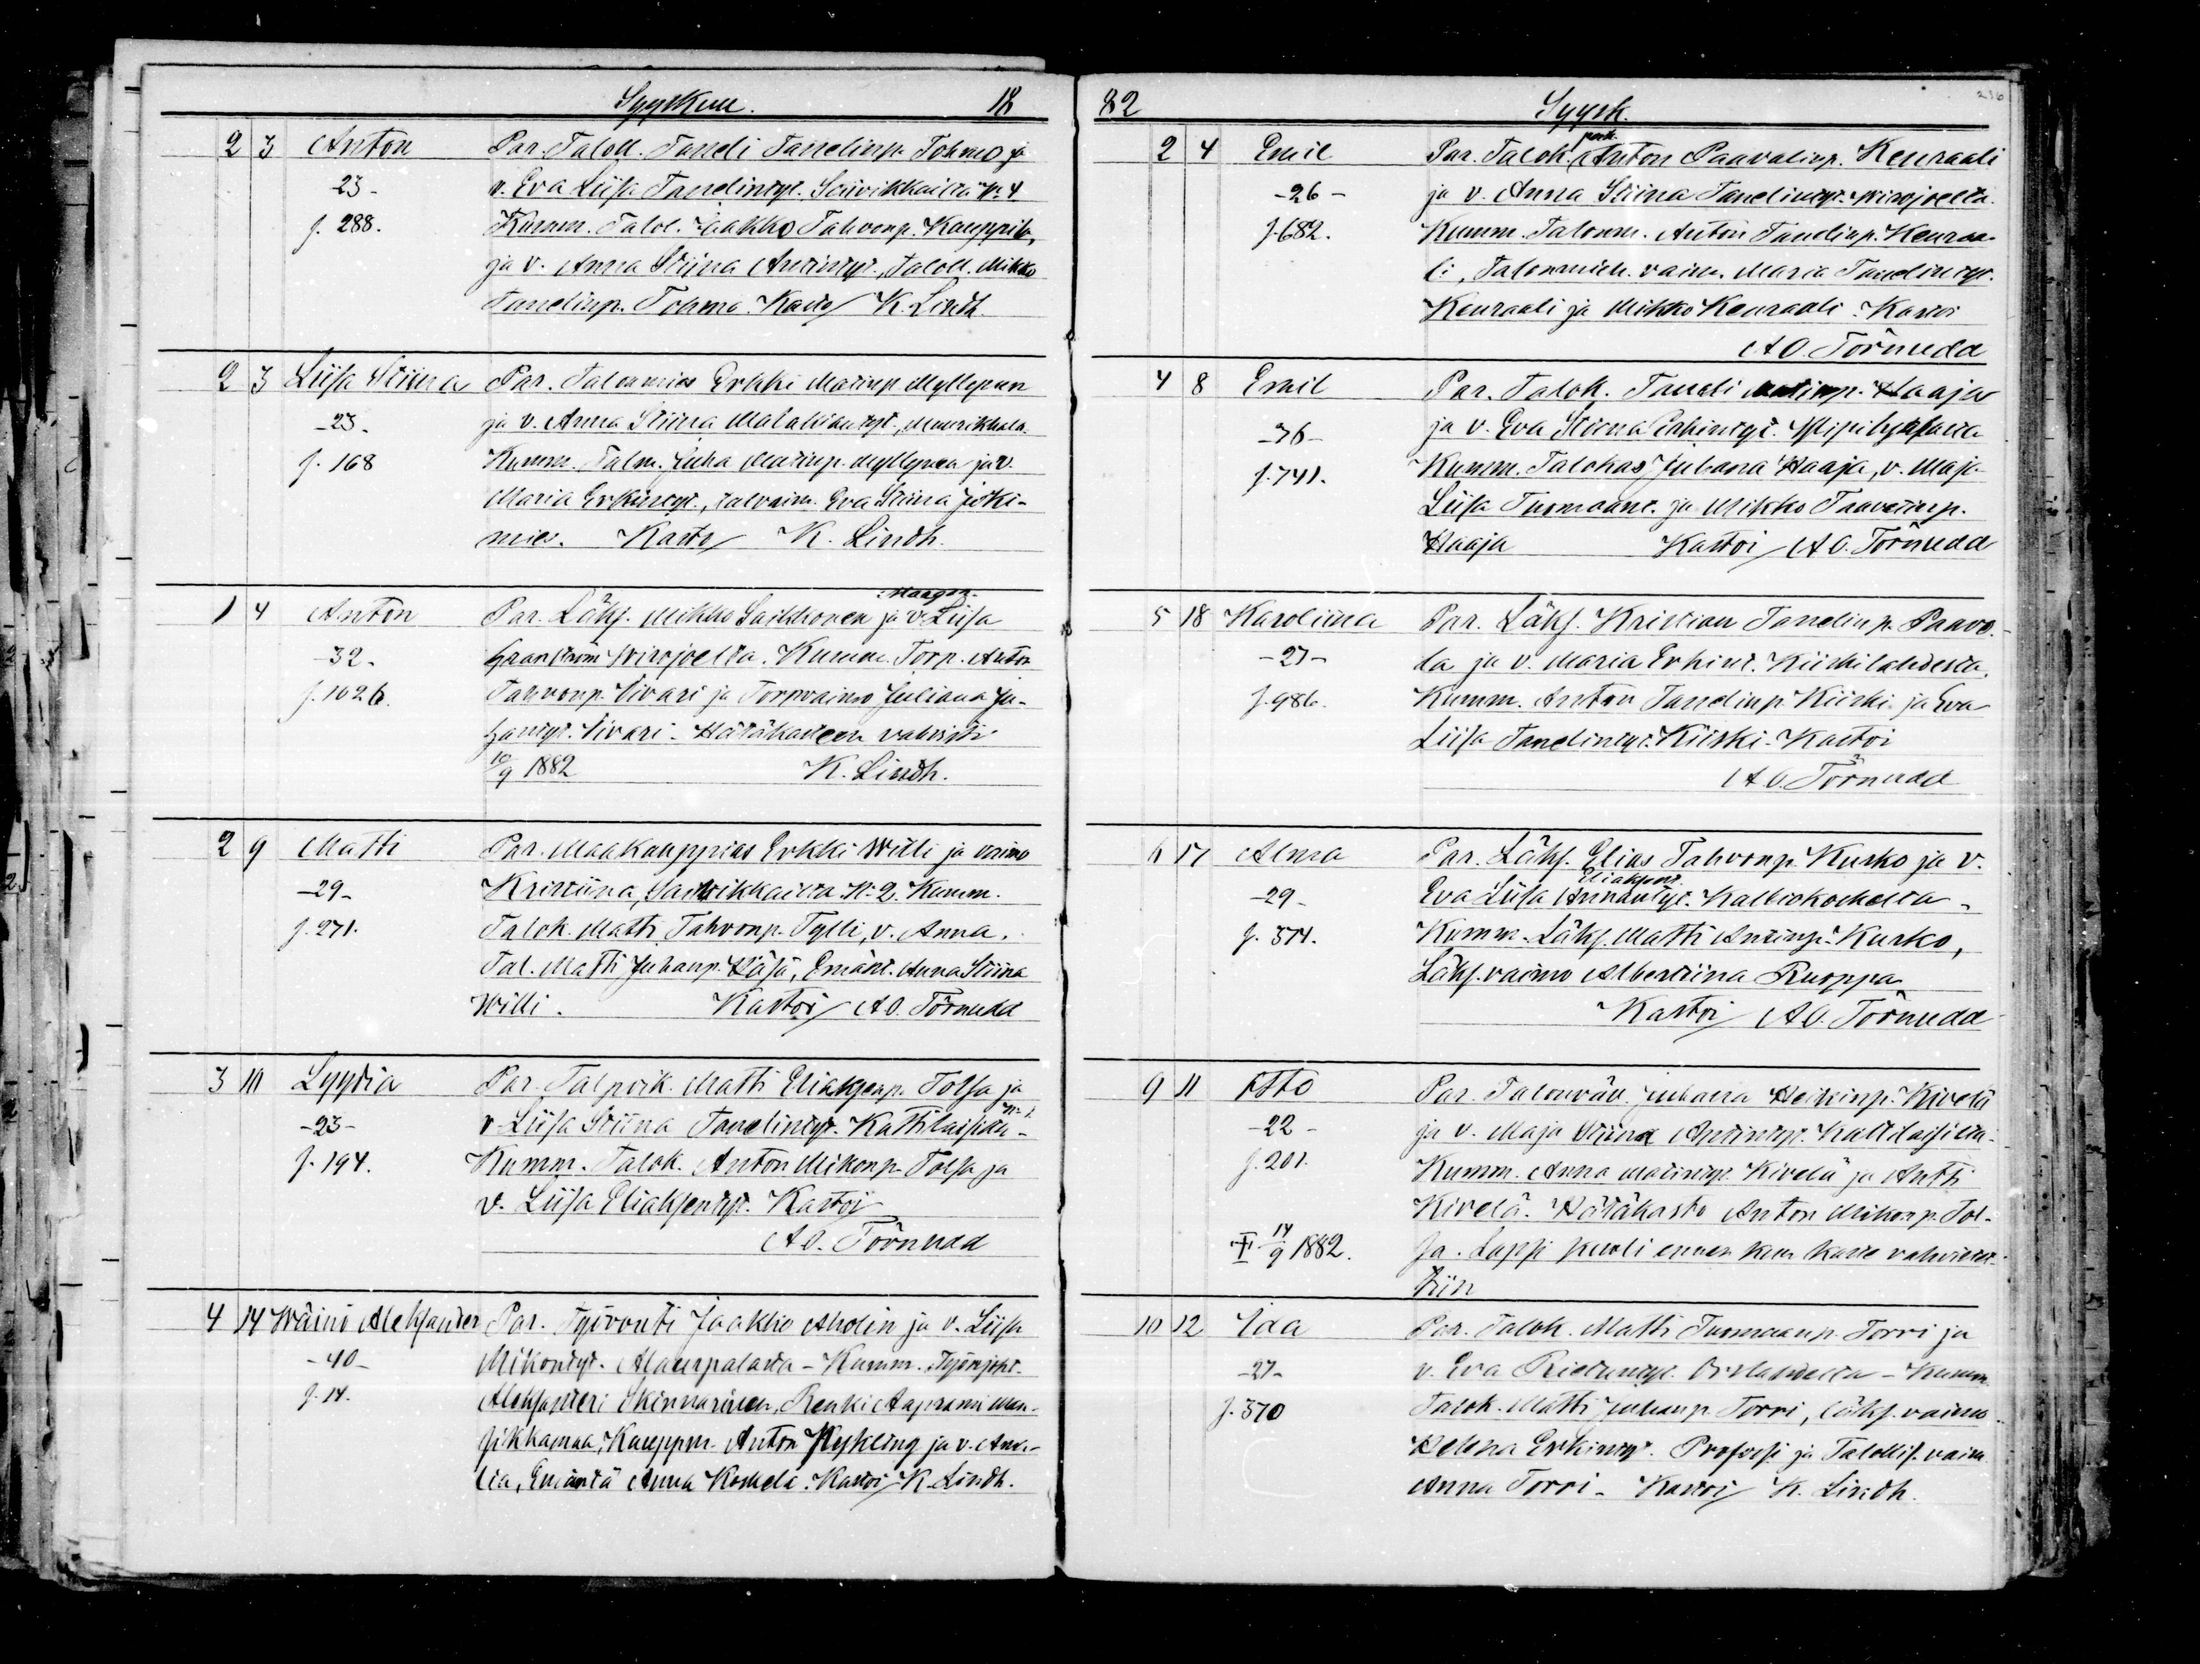 Syyskuu. 18
2 3 Anton Par. Taloll. Taneli Tanelinp. Tohmo ja
-23- v. Eva Liisa Tanelintyt. Säivikkailta No 4.
f. 288. Kumm. Talol. Jaakko Tahvonp. Kauppila,
ja v. Anna Stiina Antintyt., Taloll. Mikko
Tanelinp. Tohmo. Kastoi K. Lindh.
2 3 Liisa Stiina Par. Talonmies Erkki Matinp. Myllynen
-23- ja v. Anna Stiina Malakiaantyt., Muurikkala.
f. 168 Kumm. Talm. Juha Matinp. Myllynen ja v.
Maria Erkintyt., talvaim. Eva Stiina Jotki-
mies. Kastoi K. Lindh.
Maagon.
1 4 Anton Par. Läks. Mikko Saikkonen ja v. Liisa
-32- Granström Wirojoelta. Kumm. Torp. Anton
f. 1026. Tahvonp. Sivari ja Torpvaimo Juliana Ju-
hantyt. Sivari - Hätäkasteen vahvisti
10/9 1882 K. Lindh.
2 9 Matti Par. Maakauppias Erkki Willi ja vaimo
-29- Kristiina, Säivikkailta No 2. Kumm.
f. 271. Talok. Matti Tahvonp. Tylli, v. Anna,
Tal. Matti Juhanp. Käsä, Emänt. Anna Stiina
Willi. Kastoi A O. Törnudd
3 10 Lyydia Par. Talpoik. Matti Eliaksenp. Tolsa ja
-23- v. Liisa Stiina Tanelintyt. Kattilaisista No 1. -
f. 194. Kumm. Talok. Anton Mikonp. Tolsa ja
v. Liisa Eliaksentyt. Kastoi
A O. Törnudd
4 14 Wäinö Aleksander Par. Työvouti Jaakko Aholin ja v. Liisa
-40- Mikontyt. Alaurpalasta - Kumm. Työnjoht.
f. 14. Aleksanteri Skinnarinen, Renki Aaprami Man-
sikkamaa, Kauppm. Anton Kyckling ja v. Ama-
lia, Emäntä Anna Koskela. Kastoi K. Lindh.
82 Syysk. 216
poik.
2 4 Emil Par. Talok. Anton Paavalinp. Kenraali
-26- ja v. Anna Stiina Tanelintyt. Wirojoelta.
f. 682. Kumm. Talonm. Anton Tanelinp. Kenraa-
li, Talonmieh. vaim. Maria Tanelintyt.
Kenraali ja Mikko Kenraali. Kastoi
A O. Törnudd
4 8 Emil Par. Talok. Taneli Matinp. Haaja
-36- ja v. Eva Stiina Erkintyt.
f. 741. Kumm. Talokas Juhana Haaja, v. Maja
Liisa Tuomaant. ja Mikko Taavetinp.
Haaja Kastoi A O. Törnudd
5 18 Karoliina Par. Läks. Kristian Tanelinp. Paavo-
-27- la ja v. Maria Erkint. Kiiskilahdesta.
f. 986. Kumm. Anton Tanelinp. Kiiski ja Eva
Liisa Tanelintyt. Kiiski. Kastoi
A O. Törnudd
6 17 Alma Par. Läks. Elias Tahvonp. Kurko ja v.
Eliaksent.
-29- Eva Liisa Kalliokoskelta -
f. 374. Kumm. Läks. Matti Antinp. Kurko,
Läks. vaimo Albertiina Ruoppa
Kastoi A O. Törnudd
9 11 Otto Par. Talonväv. Juhana Heikinp. Kivelä
-22- ja v. Maja Stiina Antintyt. Kattilaisista.
f. 201. Kumm. Anna Matintyt. Kivelä ja Antti
Kivelä. Hätäkasto Anton Mikonp. Tol-
† 14/9 1882. sa. Lapsi kuoli ennen kun kaste vahvistet-
tiin
10 12 Ida Par. Talok. Matti Tuomaanp. Torri ja
-27- v. Eva Orslahdelta - Kumm.
f. 370 Talok. Matti Juhanp. Torri, läks. vaimo
Helena Erkintyt. Profossi ja Talollis. vaim.
Anna Torri - Kastoi K. Lindh.